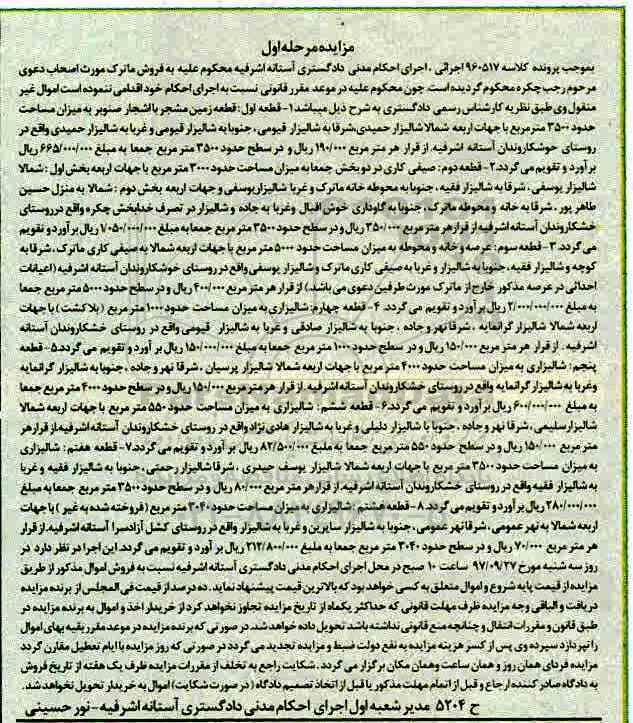 مزایده مرحله اول
بموجب پرونده کلاسه ۹۶۰۵۱۷ اجرائی ، اجرای احکام مدنی دادگستری آستانه اشرفیه محکوم علیه به فروش ماترک مورث اصحاب دعوی
مرحوم رجب چکره محکوم گردیده است. چون محکوم علیه در موعد مقرر قانونی نسبت به اجرای احکام خود اقدامی ننموده است اموال غیر
منقول وی طبق نظریه کارشناس رسمی دادگستری به شرح ذیل میباشد ۱- قطعه اول : قطعه زمین مشجر با اشجار صنوبر به میزان مساحت
حدود ۳۵۰۰ مترمربع با جهات اربعه شمالا شالیزار حمیدی،شرقا به شالیزار قیومی ، جنوبا به شالیزار قیومی و غربا به شالیزار حمیدی واقع در
روستای خوشکاروندان آستانه اشرفیه. از قرار هر متر مربع ۱۹۰/۰۰۰ ریال و در سطح حدود ۳۵۰۰ متر مربع جمعا به مبلغ ۶۶۵/۰۰۰/۰۰۰ ریال
برآورد و تقویم می گردد.۲- قطعه دوم : صیفی کاری در دو بخش جمعا به میزان مساحت حدود ۳۰۰۰ متر مربع با جهات اربعه بخش اول : شمالا
شالیزار یوسفی ، شرقا به شالیزار فقیه ، جنوبا به محوطه خانه ماترک و غربا شالیزار یوسفی و جهات اربعه بخش دوم : شمالا به منزل حسین
طاهر پور ، شرقا به خانه و محوطه ماترک ، جنوبا به گاوداری خوش اقبال وغربا به جاده و شالیزار در تصرف خدابخش چکره واقع در روستای
خشکاروندان آستانه اشرفیه از قرار هر متر مربع ۳۵۰/۰۰۰ ریال و در سطح حدود ۳۵۰۰ متر مربع جمعا به مبلغ ۷/۰۵۰/۰۰۰ ریال برآورد و تقویم
می گردد. ۳- قطعه سوم : عرصه و خانه و محوطه به میزان مساحت حدود ۵۰۰۰ متر مربع با جهات اربعه شمالا به صیفی کاری ماترک ، شرقا به
کوچه و شالیزار فقیه ، جنوبا به شالیزار و غربا به صیفی کاری ماترک و شالیزار یوسفی واقع در روستای خوشکاروندان آستانه اشرفیه ( اعیانات
احداثی در عرصه مذکور خارج از ماترک مورث طرفین دعوی می باشد. ) از قرار هر متر مربع ۴۰۰/۰۰۰ ریال و در سطح حدود ۵۰۰۰ متر مربع جمعا
به مبلغ ۲/۰۰۰/۰۰۰/۰۰۰ ریال برآورد و تقویم می گردد. ۴- قطعه چهارم: شالیزاری به میزان مساحت حدود ۱۰۰۰ متر مربع ( بلاکشت ) با جهات
اربعه شمالا شالیزار گرانمایه ، شرقا نهر و جاده ، جنوبا به شالیزار صادقی و غربا به شالیزار قیومی واقع در روستای خشکاروندان آستانه
اشرفیه . از قرار هر متر مربع ۱۵۰/۰۰۰ ریال و در سطح حدود ۱۰۰۰ متر مربع جمعا به مبلغ ۱۵۰/۰۰۰/۰۰۰ ریال برآورد و تقویم می گردد.۵- قطعه
پنجم: شالیزاری به میزان مساحت حدود ۴۰۰۰ متر مربع با جهات اربعه شمالا شالیزار پرسیان ، شرقا نهر و جاده ، جنوبا به شالیزار گرانمایه
وغربا به شالیزار گرانمایه واقع در روستای خشکاروندان آستانه اشرفیه . از قرار هر متر مربع ۱۵۰/۰۰۰ ریال و در سطح حدود ۴۰۰۰ متر مربع جمعا
به مبلغ ۶۰۰/۰۰۰/۰۰۰ ریال برآورد و تقویم می گردد.۶- قطعه ششم : شالیزاری به میزان مساحت حدود ۵۵۰ متر مربع با جهات اربعه شمالا
شالیزار سلیمی ، شرقا نهر و جاده ، جنوبا با شالیزار دلیلی و غربا به شالیزار هادی نژاد واقع در روستای خشکاروندان آستانه اشرفیه از قرار هر
متر مربع ۱۵۰/۰۰۰ ریال و در سطح حدود ۵۵۰ متر مربع جمعا به مبلغ ۸۲/۵۰۰/۰۰۰ ریال برآورد و تقویم می گردد.۷- قطعه هفتم : شالیزاری
به میزان مساحت حدود ۳۵۰۰ متر مربع با جهات اربعه شمالا شالیزار یوسف حیدری ، شرقا شالیزار رحمتی، جنوبا به شالیزار فقیه و غربا
به شالیزار فقیه واقع در روستای خشکاروندان آستانه اشرفیه. از قرار هر متر مربع ۸۰/۰۰۰ ریال و در سطح حدود ۳۵۰۰ متر مربع جمعا به مبلغ
۲۸۰/۰۰۰/۰۰۰ ریال برآورد و تقویم می گردد. ۸- قطعه هشتم : شالیزاری به میزان مساحت حدود ۳۰۴۰ متر مربع ( فروخته شده به غیر ) با جهات
اربعه شمالا به نهر عمومی ، شرقا نهر عمومی ، جنوبا به شالیزار سایرین و غربا به شالیزار واقع در روستای کشل آزادسرا آستانه اشرفیه. از قرار
هر متر مربع ۷۰/۰۰۰ ریال و در سطح حدود ۳۰۴۰ متر مربع جمعا به مبلغ ۲۱۲/۸۰۰/۰۰۰ ریال برآورد و تقویم می گردد. این اجرا در نظر دارد در
روز سه شنبه مورخ ۹۷/۰۹/۲۷ ساعت ۱۰ صبح در محل اجرای احکام مدنی دادگستری آستانه اشرفیه نسبت به فروش اموال مذکور از طریق
مزایده از قیمت پایه شروع و اموال متعلق به کسی خواهد بود که بالاترین قیمت پیشنهاد نماید. ده درصد از قیمت فی المجلس از برنده مزایده
دریافت و الباقی وجه مزایده ظرف مهلت قانونی که حداکثر یکماه از تاریخ مزایده تجاوز نخواهد کرد از خریدار اخذ و اموال به برنده مزایده در
طبق قانون و مقررات انتقال و چنانچه منع قانونی نداشته باشد تحویل داده خواهد شد. در صورتی که برنده مزایده در موعد مقرر بقیه بهای اموال
را نپردازد سپرده وی پس از کسر هزینه مزایده به نفع دولت ضبط و مزایده تجدید می گردد در صورتی که روز مزایده با ایام تعطیل مقارن گردد
مزایده فردای همان روز و همان ساعت وهمان مکان برگزار می گردد . شکایت راجع به تخلف از مقررات مزایده ظرف یک هفته از تاریخ فروش
به دادگاه صادر کننده ارجاع و قبل از اتمام مهلت مذکور یا قبل از اتخاذ تصمیم دادگاه ( در صورت شکایت ) اموال به خریدار تحویل نخواهد شد.
ح ۵۲۰۴ مدیر شعبه اول اجرای احکام مدنی دادگستری آستانه اشرفیه - نور حسینی